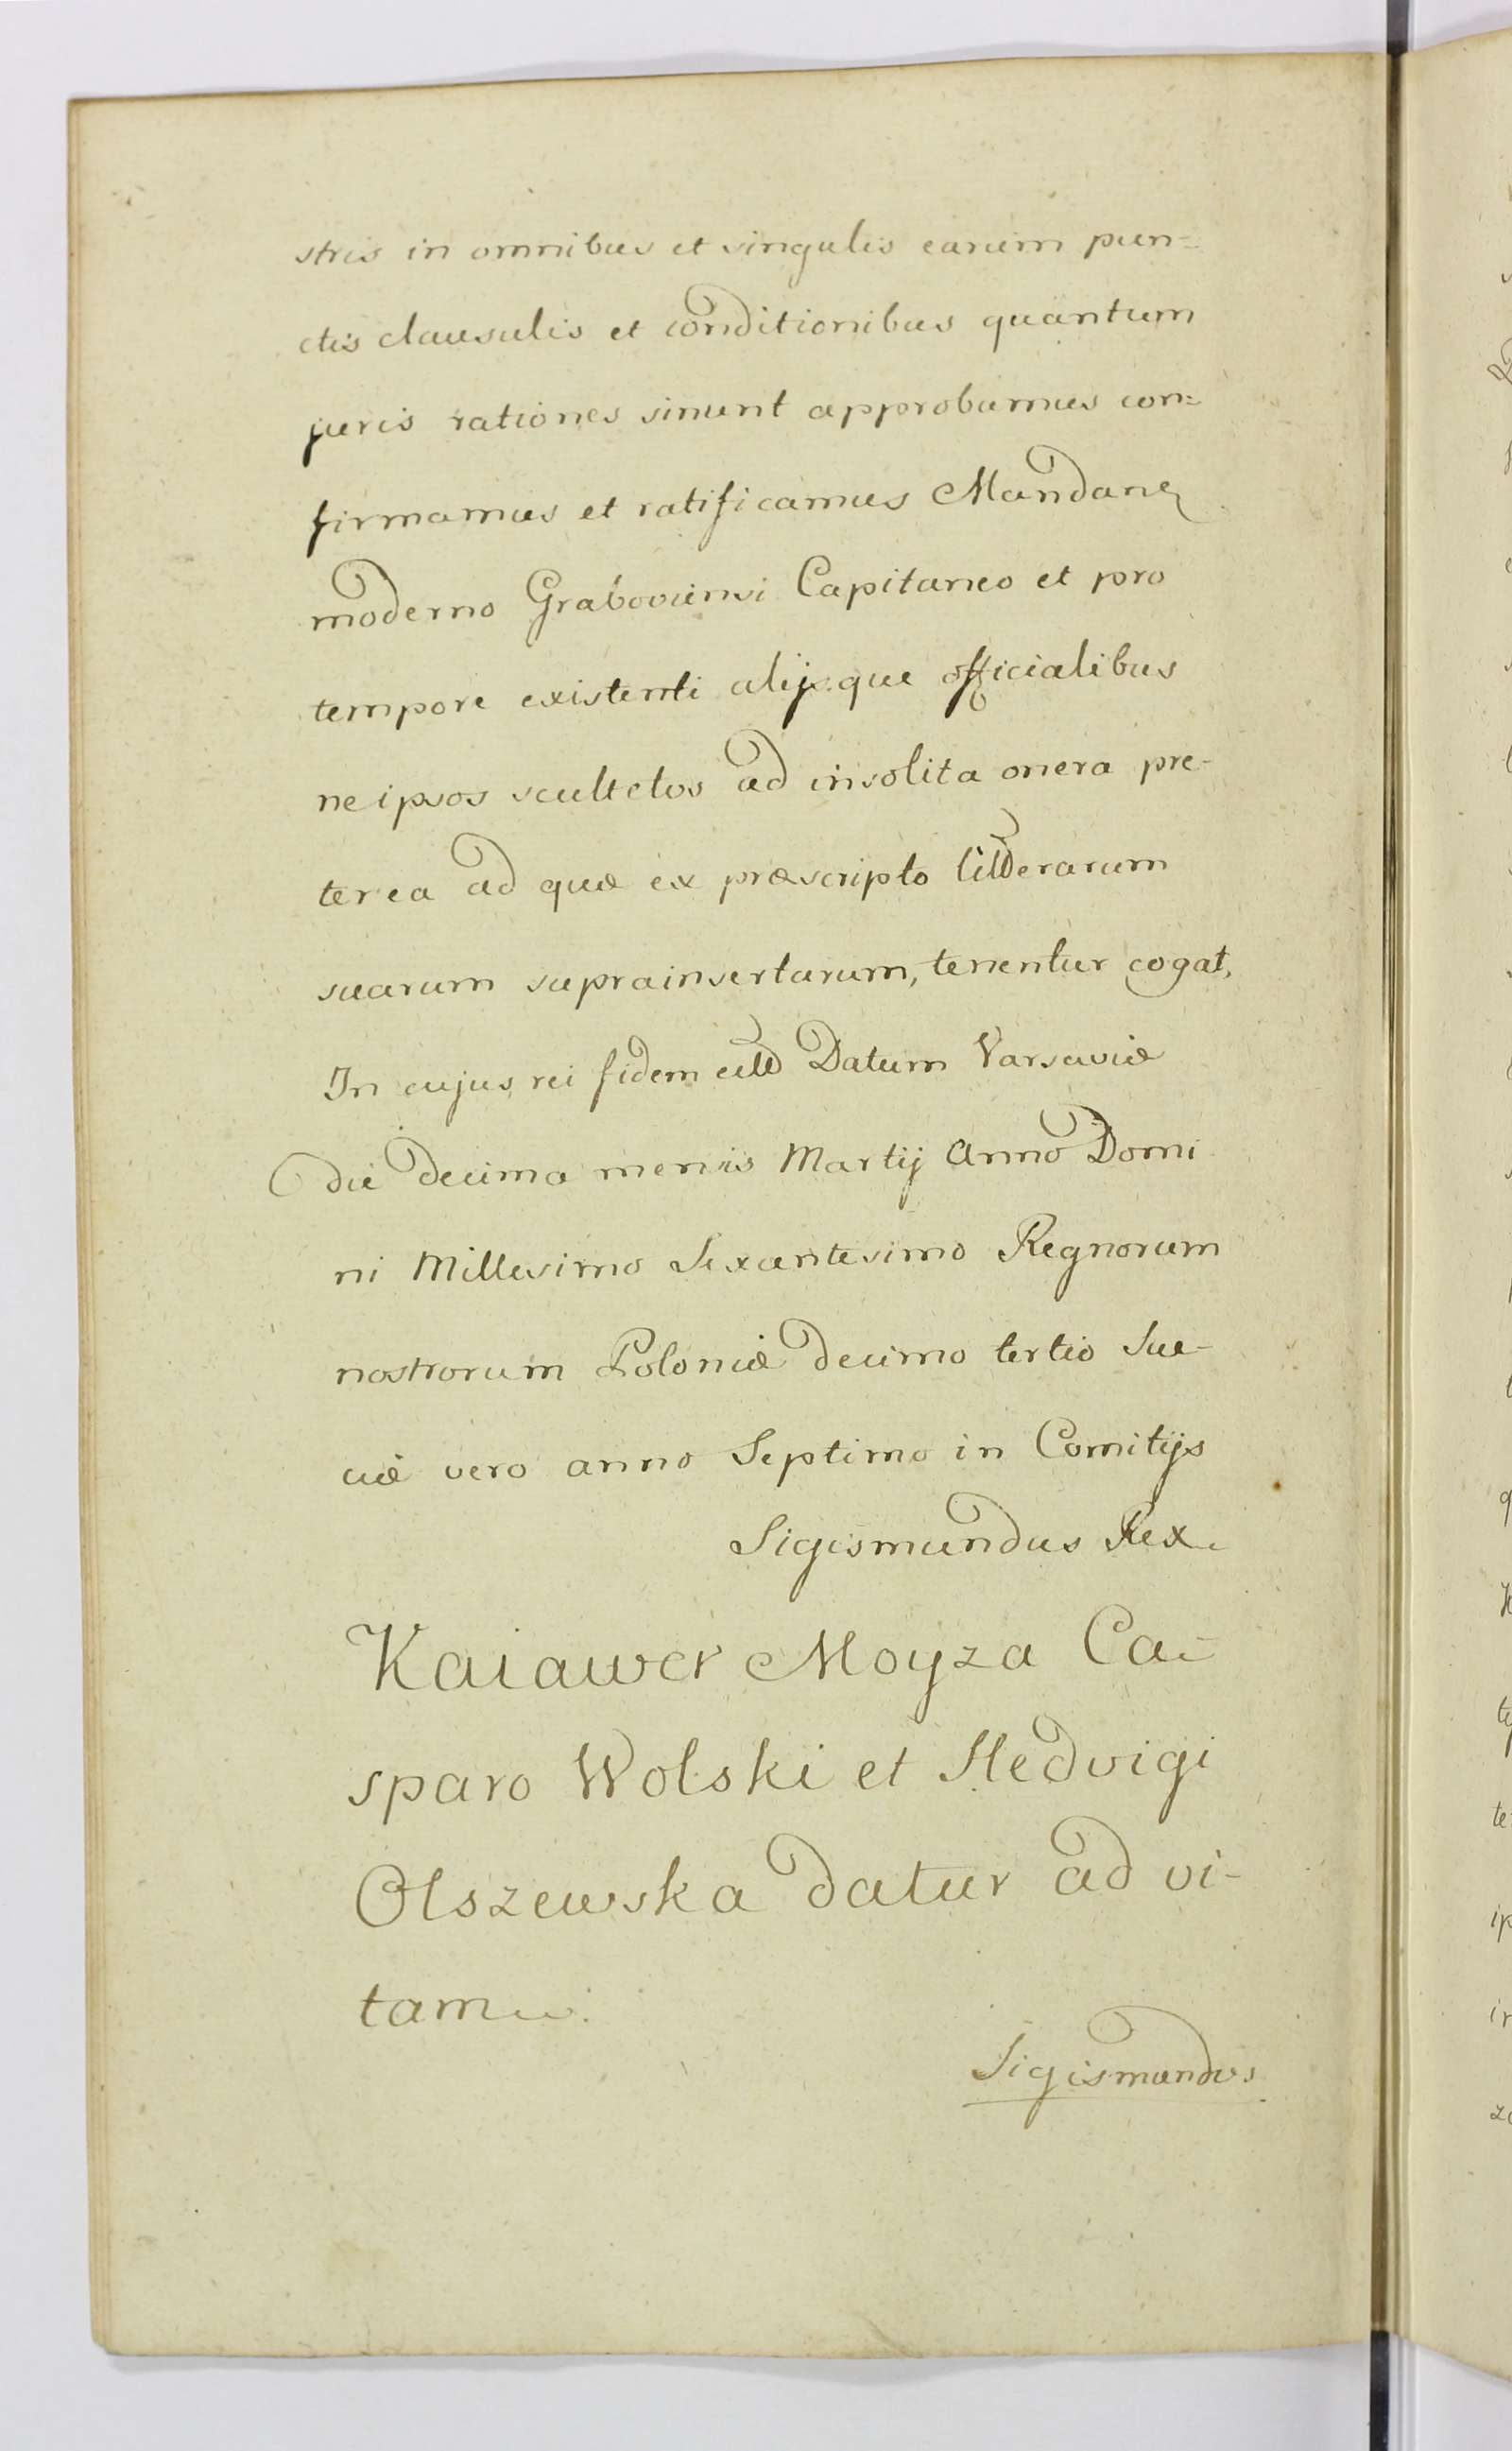 stris in omnibus et singulis earum pun=
ctis clausulis et conditionibus quantum
juris rationes sinunt approbamus con=
firmamus et ratificamus Mandanę
moderno Graboviensi Capitaneo et pro
tempore existenti alijsque officialibus
ne ipsos scultetos ad insolita onera pre-
terea ad quæ ex præscripto litterarum
suarum suprainsertarum, tenentur cogat,
In cujus rei fidem Datum Varsaviæ
die decima mensis Martij Anno Domi
ni Millesimo Sexcentesimo Regnorum
nostrorum Poloniæ decimo tertio Sue-
ciæ vero anno Septimo in Comitijs
Sigismundus Rex.
Kaiawer Moyza Ca=
sparo Wolski et Hedvigi
Olszewska datur ad vi-
tam
Sigismundus